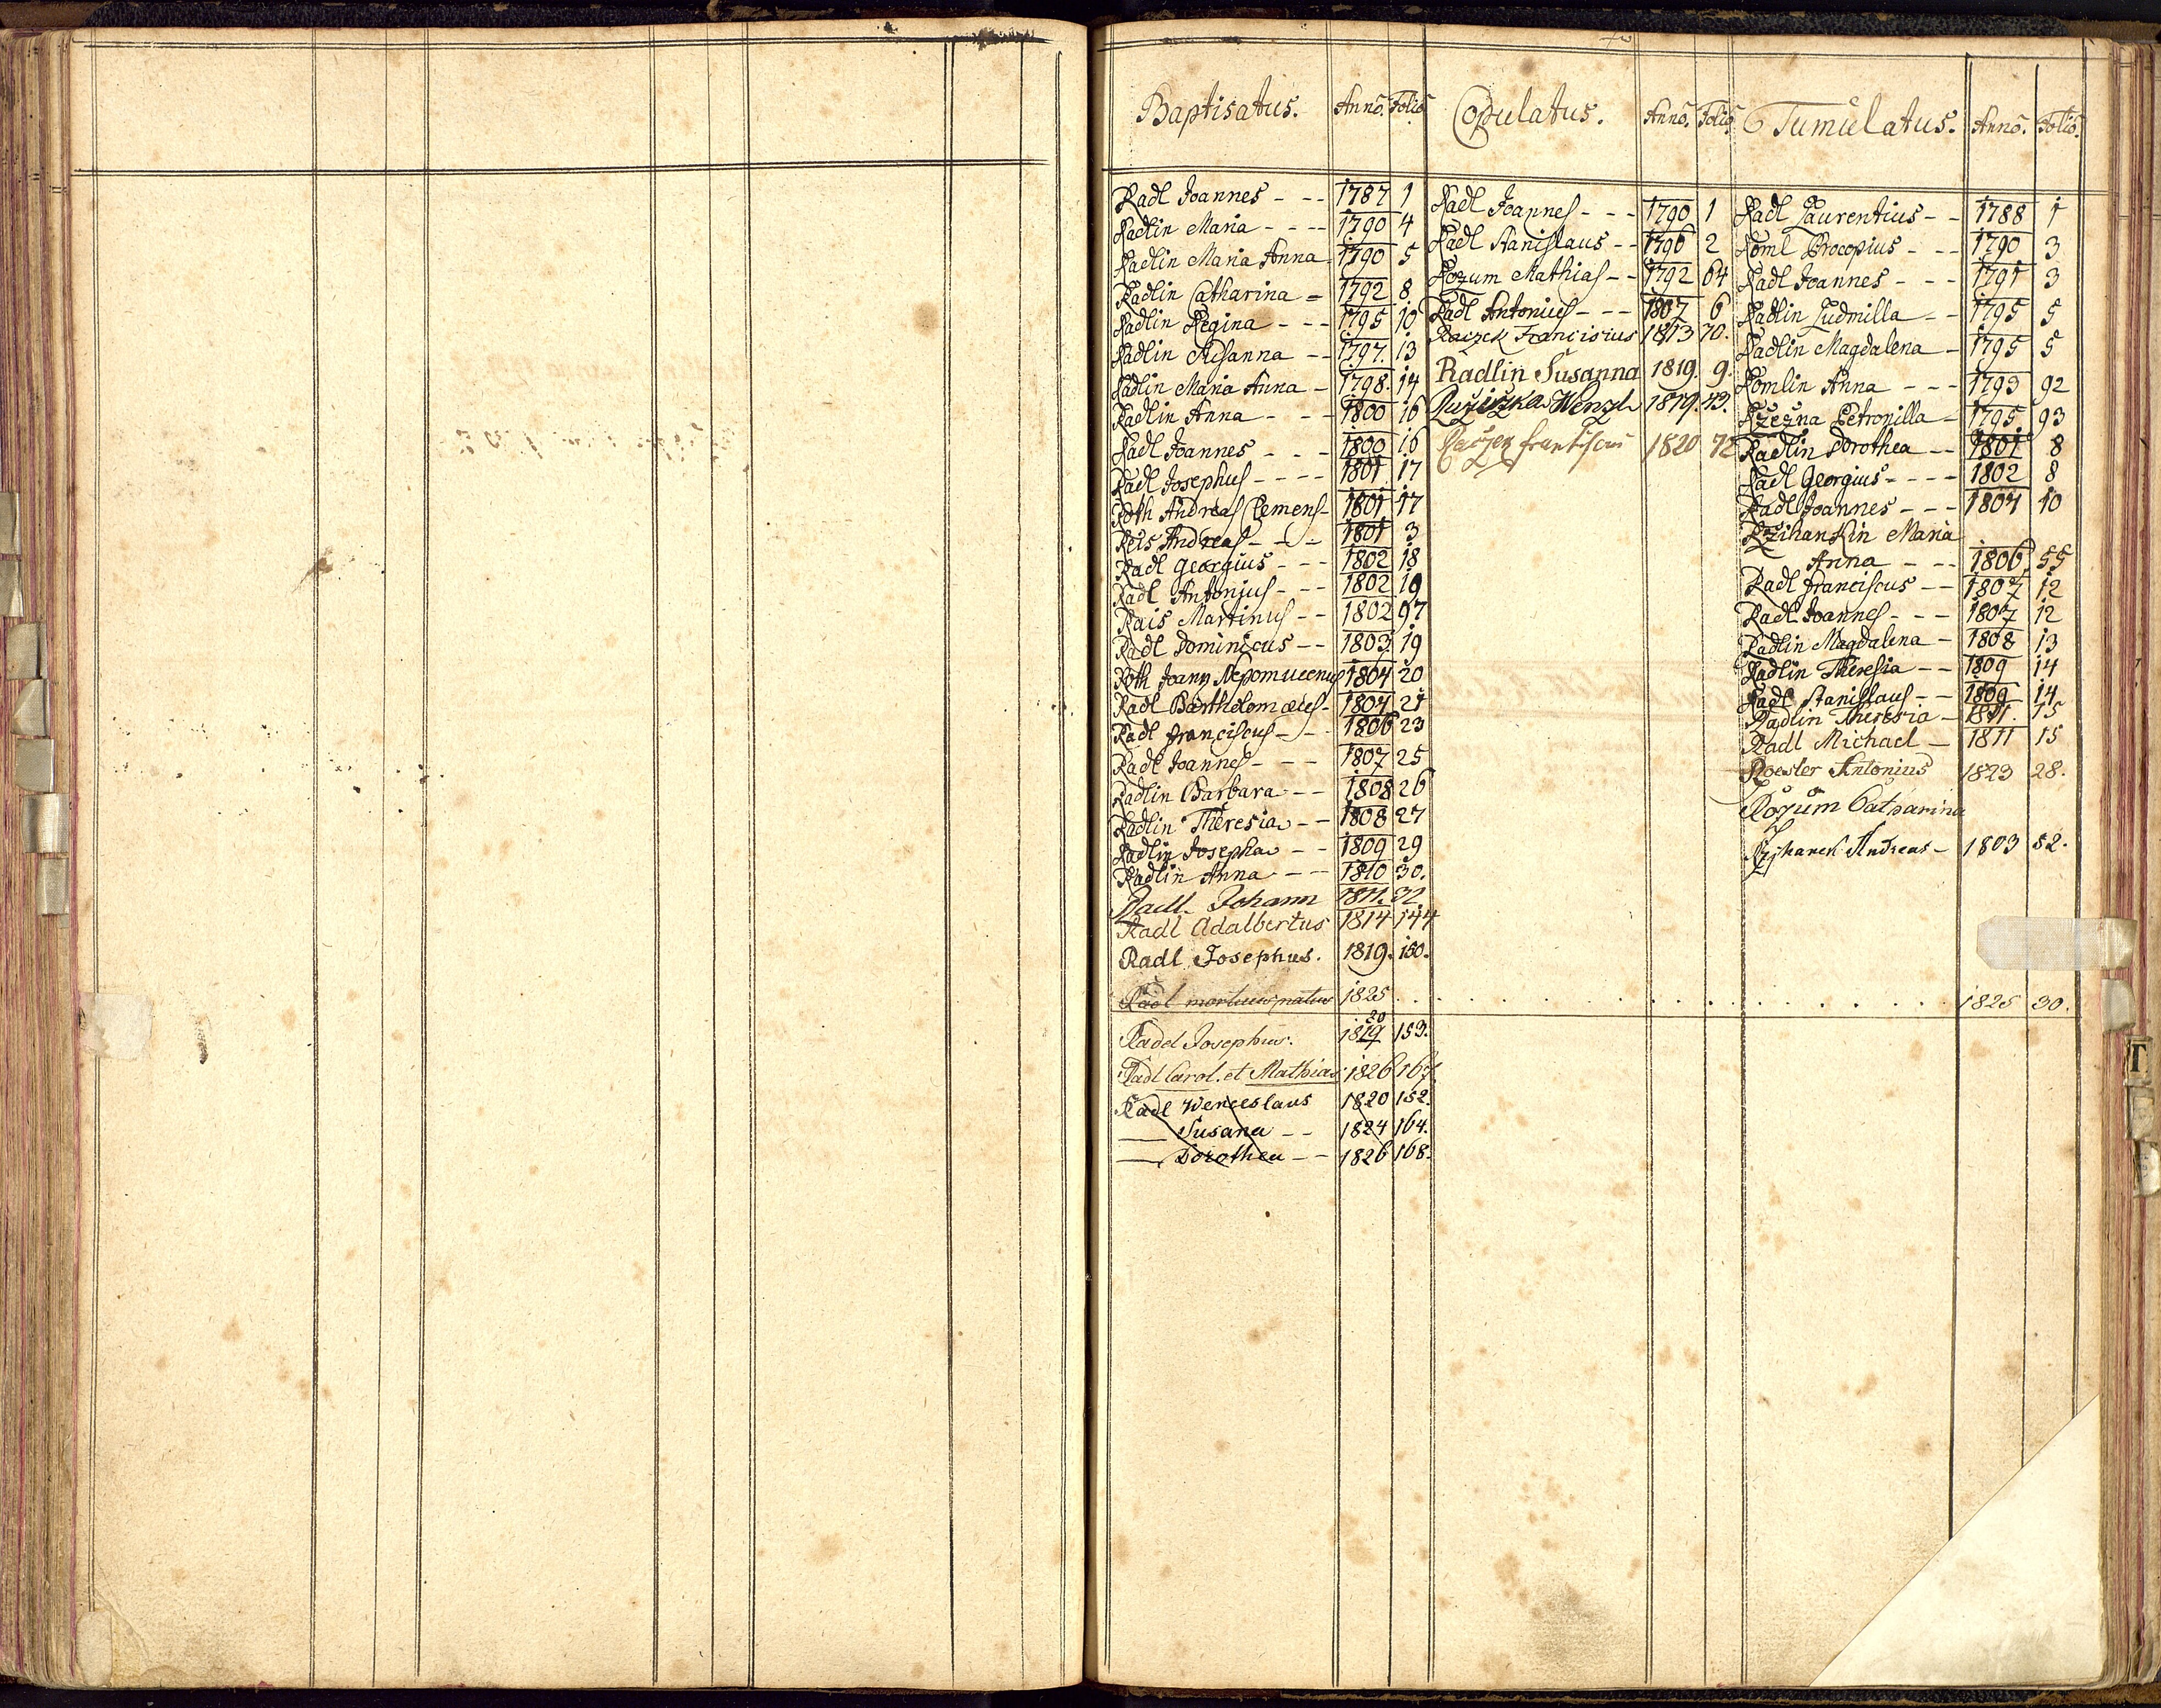 Baptisatus. Anno. Folio
Radl Joannes - - - 1787 1
Radlin Maria - - - - 1790 4
Radlin Maria Anna 1790 5
Radlin Catharina - 1792 8
Radlin Regina - - - 1795 10
Radlin Rosanna - - 1797. 13
Radlin Maria Anna - 1798. 14
Radlin Anna - - - 1800 16
Radl Joannes - - - 1800 16
Radl Josephus - - - - 1801 17
Roth Andreas Clemens - 1801 17
Reis Andreas - - - 1801 3
Radl Georgius - - - 1802 18
Radl Antonius - - - 1802 19
Rais Martinus - - 1802 97
Radl Dominicus - - 1803 19
Roth Joann Nepomucenus 1804 20
Radl Bartholomæus - 1804 21
Radl Franciscus - - 1806 23
Radl Joannes - - - 1807 25
Radlin Barbara - - 1808 26
Radlin Theresia - - 1808 27
Radlin Josepha - - 1809 29
Radlin Anna - - 1810 30.
Radl. Johann 1811. 32
Radl Adalbertus 1814 144
Radl Josephus. 1819. 150.
Radl mortuus natus 1825 . . . . . . 1825 30.
20
Radl Josephus. 1819 153.
Radl Carol. et Mathias 1826 167
Radl Wenceslaus 1820 152.
— Susana - - 1824 164.
— Dorothea - - 1826 168.
Copulatus. Anno. Folio
Radl Joannes - - - 1790 1
Radl Stanislaus - - 1796 2
Rozum Mathias - - 1792 64
Radl Antonius - - - 1807 6
Raczek Franciscus 1813 70.
Radlin Susanna 1819. 9.
Ružiczka Wenzl 1819. 43.
1820 72
Tumulatus. Anno. Folio.
Radl Laurentius - - 1788 1
Roml Procopius - - - 1790 3
Radl Joannes - - - 1791 3
Radlin Ludmilla - - 1795 5
Radlin Magdalena - 1795 5
Romlin Anna - - - 1793 92
Petronilla - 1795 93
Radlin Dorothea - - 1801 8
Radl Georgius - - - - 1802 8
Radl Joannes - - - 1804 10
Rzihankin Maria
Anna - - - 1806 55
Radl Franciscus - - 1807 12
Radl Joannes - - - 1807 12
Radlin Magdalena - 1808 13
Radlin Theresia - - 1809 14
Radl Stanislaus - - 1809 14
Radlin Theresia - 1811. 15
Radl Michael - 1811 15
Roesler Antonius 1823 28.
Rozum Catharina
Rzihanek Andreas - 1803 52.
T